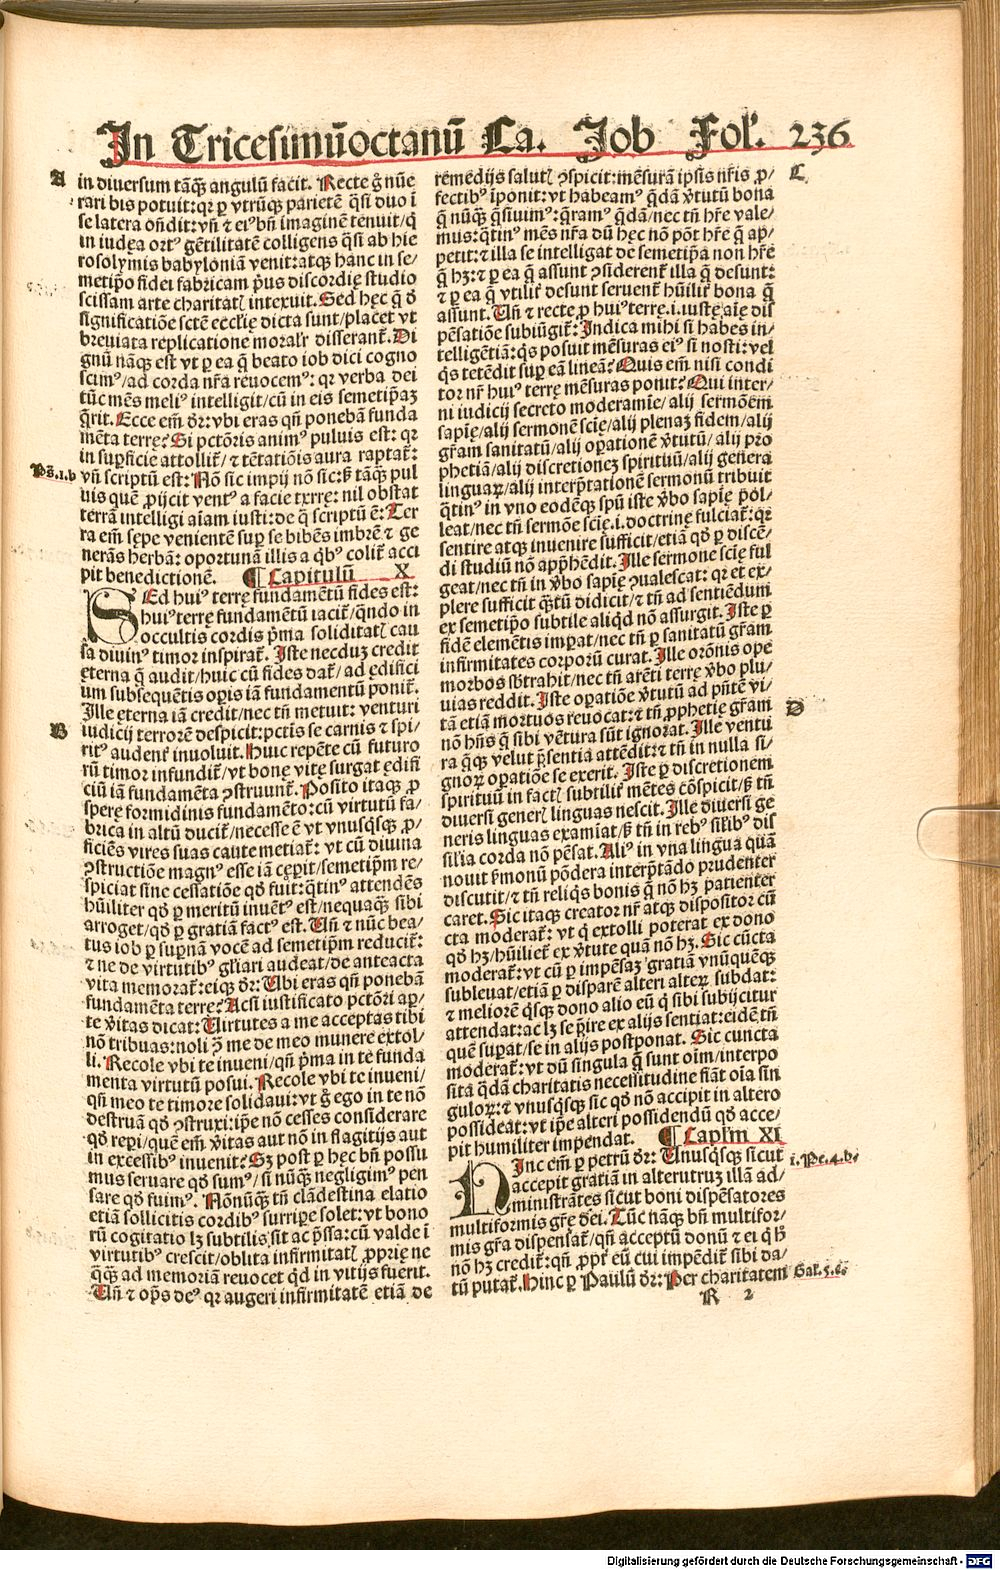 In Tricesimūoctanū Ca. Job Folꝭ. 236
A
in diuersum tāꝙ angulū facit. Recte g̊ nūc
rari bis potuit: qꝛ ꝑ vtrūꝙ parietē q̄si duo ī
se latera oñdit: vñ ⁊ eiꝰ bñ imaginē tenuit/ q̇
in iudęa ortꝰ gētilitatē colligens q̄si ab hie
rosolymis babyloniā venit: atqꝫ hanc in se⸗
metip̄o fidei fabricam p̄us discordię studio
scissam arte charitatꝭ intexuit. Sed hęc q̄ ď
significatiōe sct̄ę eccłię dicta sunt/ placet vt
breuiata replicatione moralr̄ disserant̄. Di
gnū nāꝙ est vt ꝑ ea q̄ beato iob dici cogno
scimꝰ/ ad corda nr̄a reuocemꝰ: qꝛ verba dei
tūc mēs meliꝰ intelligit/ cū in eis semetip̄aꝫ
q̄rit. Ecce em̄ ďr: vbi eras qñ ponebā funda
mēta terrę? Si pctōris animꝰ puluis est: qꝛ
in suꝑficie attollit̄/ ⁊ tētatiōis aura raptat̄:
Ps̄.1.b
vñ scriptū est: Nō sic impij nō sic: sꝫ tāꝙ pul
uis quē ꝓijcit ventꝰ a facie terrę: nil obstat
terrā intelligi aīam iusti: de q̄ scriptū ē: Ter
ra em̄ sępe venientē suꝑ se bibēs imbrē ⁊ ge
nerās herbā: oportunā illis a q̇bꝰ colit̄ acci
pit benedictionē. ¶ Capitulū X
SEd huiꝰ terrę fundamētū fides est:
huiꝰ terrę fundamētū iacit̄/ qñdo in
occultis cordis p̄ma soliditatꝭ cau
sa diuinꝰ timor inspirat̄. Iste necduꝫ credit
ęterna q̄ audit/ huic cū fides dat̄/ ad ędifici
um subsequētis oꝑis iā fundamentū ponit̄.
Ille ęterna iā credit/ nec tñ metuit: venturi
B
iudicij terrorē despicit: pctīs se carnis ⁊ spi⸗
ritꝰ audent̄ inuoluit. Huic repēte cū futuro
rū timor infundit̄/ vt bonę vitę surgat ędifi
ciū iā fundamēta ꝯstruunt̄. Posito itaqꝫ ꝓ
sperę formidinis fundamēto: cū virtutū fa⸗
brica in altū ducit̄/ necesse ē vt vnusq̇sqꝫ ꝓ⸗
ficiēs vires suas caute metiat̄: vt cū diuina
ꝯstructiōe magnꝰ esse iā cępit/ semetip̄m re⸗
spiciat sine cessatiōe qď fuit: q̄tinꝰ attendēs
hūiliter qď ꝑ meritū inuētꝰ est/ nequaꝙ sibi
arroget/ qď ꝑ gratiā factꝰ est. Uñ ⁊ nūc bea⸗
tus iob ꝑ suꝑnā vocē ad semetip̄m reducit̄:
⁊ ne de virtutibꝰ gl̄iari audeat/ de anteacta
vita memorat̄: eiqꝫ ďr: Ubi eras qñ ponebā
fundamēta terrę? Acsi iustificato pctōri aꝑ⸗
te v̄itas dicat: Uirtutes a me acceptas tibi
nō tribuas: noli ꝯ̄ me de meo munere extol⸗
li. Recole vbi te inueni/ qñ p̄ma in te funda
menta virtutū posui. Recole vbi te inueni/
qñ meo te timore solidaui: vt g̊ ego in te nō
destruā qď ꝯstruxi: ip̄e nō cesses considerare
qď reꝑi/ quē em̄ v̄itas aut nō in flagitijs aut
in excessibꝰ inuenit? Sꝫ post ꝑ hęc bñ possu
mus seruare qď sumꝰ/ si nūꝙ negligimꝰ pen
sare qď fuimꝰ. Nōnūꝙ tñ clādestina elatio
etiā sollicitis cordibꝰ surripe solet: vt bono
rū cogitatio lꝫ subtilis sit ac p̄ssa: cū valde ī
virtutibꝰ crescit/ oblita infirmitatꝭ ꝓprię ne
q̄ꝙ ad memoriā reuocet qd in vitijs fuerit.
Uñ ⁊ op̄s deꝰ qꝛ augeri infirmitatē etiā de
remedijs salutꝭ ꝯspicit: mēsurā ipsis nr̄is ꝓ⸗
C
fectibꝰ īponit: vt habeamꝰ q̄dā v̄tutū bona
q̄ nūꝙ q̄siuimꝰ: q̄ramꝰ q̄dā/ nec tñ hr̄e vale⸗
mus: q̄tinꝰ mēs nr̄a dū hęc nō pōt hr̄e q̄ aꝑ⸗
petit: ⁊ illa se intelligat de semetip̄a non hr̄e
q̄ hꝫ: ⁊ ꝑ ea q̄ assunt ꝯsiderent̄ illa q̄ desunt:
⁊ ꝑ ea q̄ vtilit̄ desunt seruent̄ hūilit̄ bona q̄
assunt. Uñ ⁊ recte ꝓ huiꝰ terrę .i. iustę aīę dis
pēsatiōe subiūgit̄: Indica mihi si habes in⸗
telligētiā: q̇s posuit mēsuras eiꝰ si nosti: vel
q̇s tetēdit suꝑ eā lineā? Quis em̄ nisi condi
tor nr̄ huiꝰ terrę mēsuras ponit? Qui inter⸗
ni iudicij secreto moderamīe/ alij sermōem
sapīę/ alij sermonē scīę/ alij plenaꝫ fidem/ alij
gr̄am sanitatū/ alij oꝑationē v̄tutū/ alij pro
phetiā/ alij discretioneꝫ spirituū/ alij genera
linguaꝝ/ alij interp̄tationē sermonū tribuit
q̄tinꝰ in vno eodēqꝫ spū iste v̄bo sapīę pol⸗
leat/ nec tñ sermōe scīę .i. doctrinę fulciat̄: qꝛ
sentire atqꝫ inuenire sufficit/ etiā qď ꝑ discē⸗
di studiū nō app̄hēdit. Ille sermone scīę ful
geat/ nec tñ in v̄bo sapīę ꝯualescat: qꝛ et ex⸗
plere sufficit q̄tū didicit/ ⁊ tñ ad sentiēdum
ex semetip̄o subtile aliqd nō assurgit. Iste ꝑ
fidē elemētis imꝑat/ nec tñ ꝑ sanitatū gr̄am
infirmitates corporū curat. Ille orōnis ope
morbos sb̄trahit/ nec tñ arēti terrę v̄bo plu⸗
uias reddit. Iste oꝑatiōe v̄tutū ad p̄ntē vi⸗
D
tā etiā mortuos reuocat: ⁊ tñ ꝓphetię gr̄am
nō hñs q̄ sibi vētura sūt ignorat. Ille ventu
ra q̄ꝙ velut p̄sentia attēdit: ⁊ tñ in nulla si⸗
gnoꝝ oꝑatiōe se exerit. Iste ꝑ discretionem
spirituū in factꝭ subtilit̄ mētes cōspicit/ sꝫ tñ
diuersi generꝭ linguas nescit. Ille diuersi ge
neris linguas examiat/ sꝫ tñ in rebꝰ sil̄ibꝰ dis
sil̄ia corda nō pēsat. Aliꝰ in vna lingua quā
nouit s̄monū pōdera interp̄tādo prudenter
discutit/ ⁊ tñ reliq̇s bonis q̄ nō hꝫ patienter
caret. Sic itaqꝫ creator nr̄ atqꝫ dispositor cū
cta moderat̄: vt q̇ extolli poterat ex dono
qď hꝫ/ hūiliet̄ ex v̄tute quā nō hꝫ. Sic cūcta
moderat̄: vt cū ꝑ impēsaꝫ gratiā vnūquēqꝫ
subleuat/ etiā ꝑ disparē alteri alteꝝ subdat:
⁊ meliorē q̇sqꝫ dono alio eū q̇ sibi subijcitur
attendat: ac lꝫ se p̄ire ex alijs sentiat: eidē tñ
quē suꝑat/ se in alijs postponat. Sic cuncta
moderat̄: vt dū singula q̄ sunt oīm/ interpo
sita q̄dā charitatis necessitudine fiāt oīa sin
guloꝝ: ⁊ vnusq̇sqꝫ sic qď nō accipit in altero
possideat: vt ip̄e alteri possidendū qď acce⸗
pit humiliter impendat. ¶ Caplm̄ XI
HInc em̄ ꝑ petrū ďr: Unusq̇sqꝫ sicut
i. Pe.4.b.
accepit gratiā in alterutruꝫ illā ad⸗
ministrātes sicut boni dispēsatores
multiformis gr̄ę dei. Tūc nāꝙ bñ multifor⸗
mis gr̄a dispensat̄/ qñ acceptū donū ⁊ ei q̇ hꝰ
nō hꝫ credit̄: qñ ꝓpt̄ eū cui impēdit̄ sibi da⸗
tū putat̄. Hinc ꝑ Paulū ďr: Per charitatem
Gal.5.c.
R 2
Digitalisierung gefördert durch die Deutsche Forschungsgemeinschaft - DFG